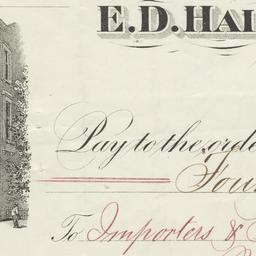 E.D. HAI
Pay to the orde
Four
To Importers &